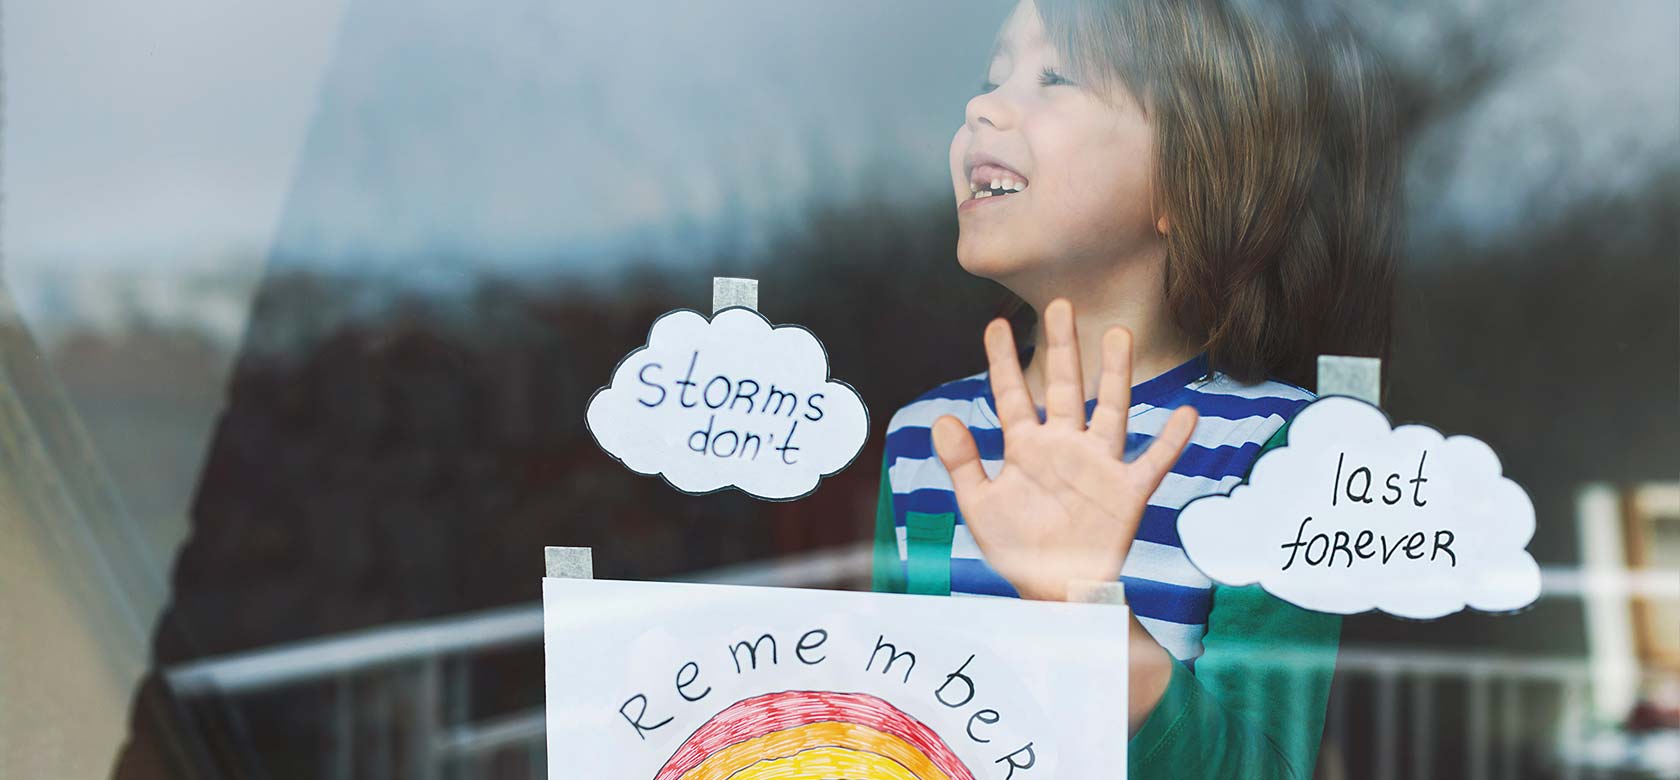 storms
don't
last
forever
Remember